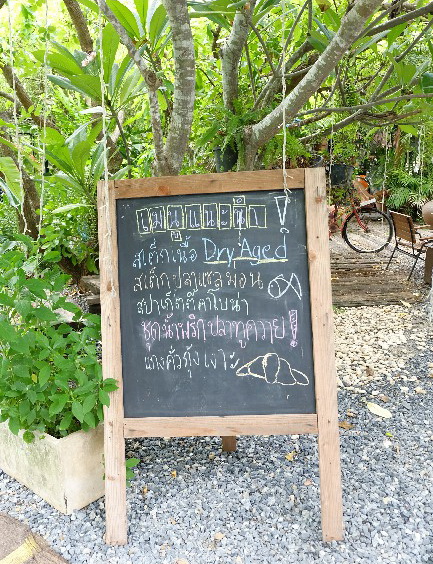 เมนูแนะนำ!
สเต็กเนื้อ Dry Aged
สเต็กปลาแซลมอน
สปาเก็ตตี้คาโบน่า
ชุดน้ำพริกปลาทูควาย!
แกงคั่วกุ้งเงาะ